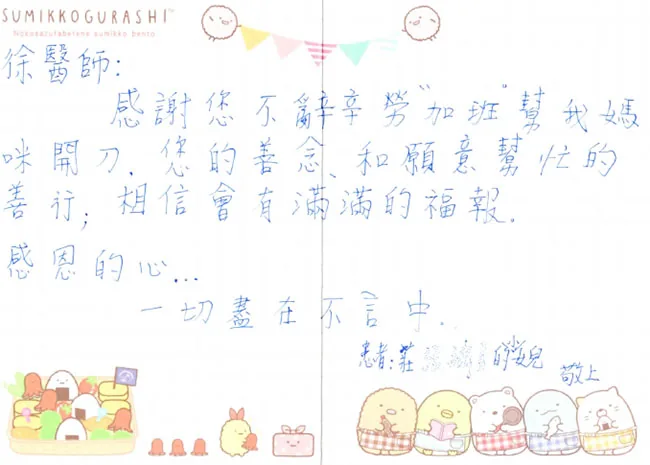 SUMIKKOGURASHI
Nokosazutabetene sumikko bento
徐醫師:
感謝您不辭辛勞"加班"幫我媽
咪開刀、您的善念、和願意幫忙的
善行;相信會有滿滿的福報.
感恩的心...
一切盡在不言中..
患者:莊 的女兒
敬上